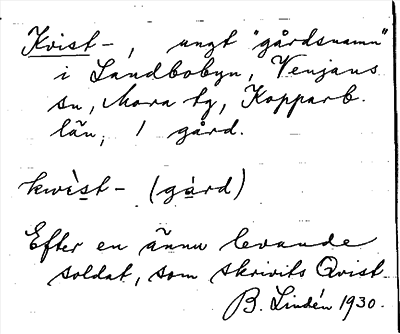 Kvist-, ungt "gårdsnamn"
i Landbobyn, Venjans
sn, Mora tg, Kopparb.
län; 1 gård.
kwìst- (gård)
Efter en ännu levande
soldat, som skrivits Qvist.
B. Lindén 1930.